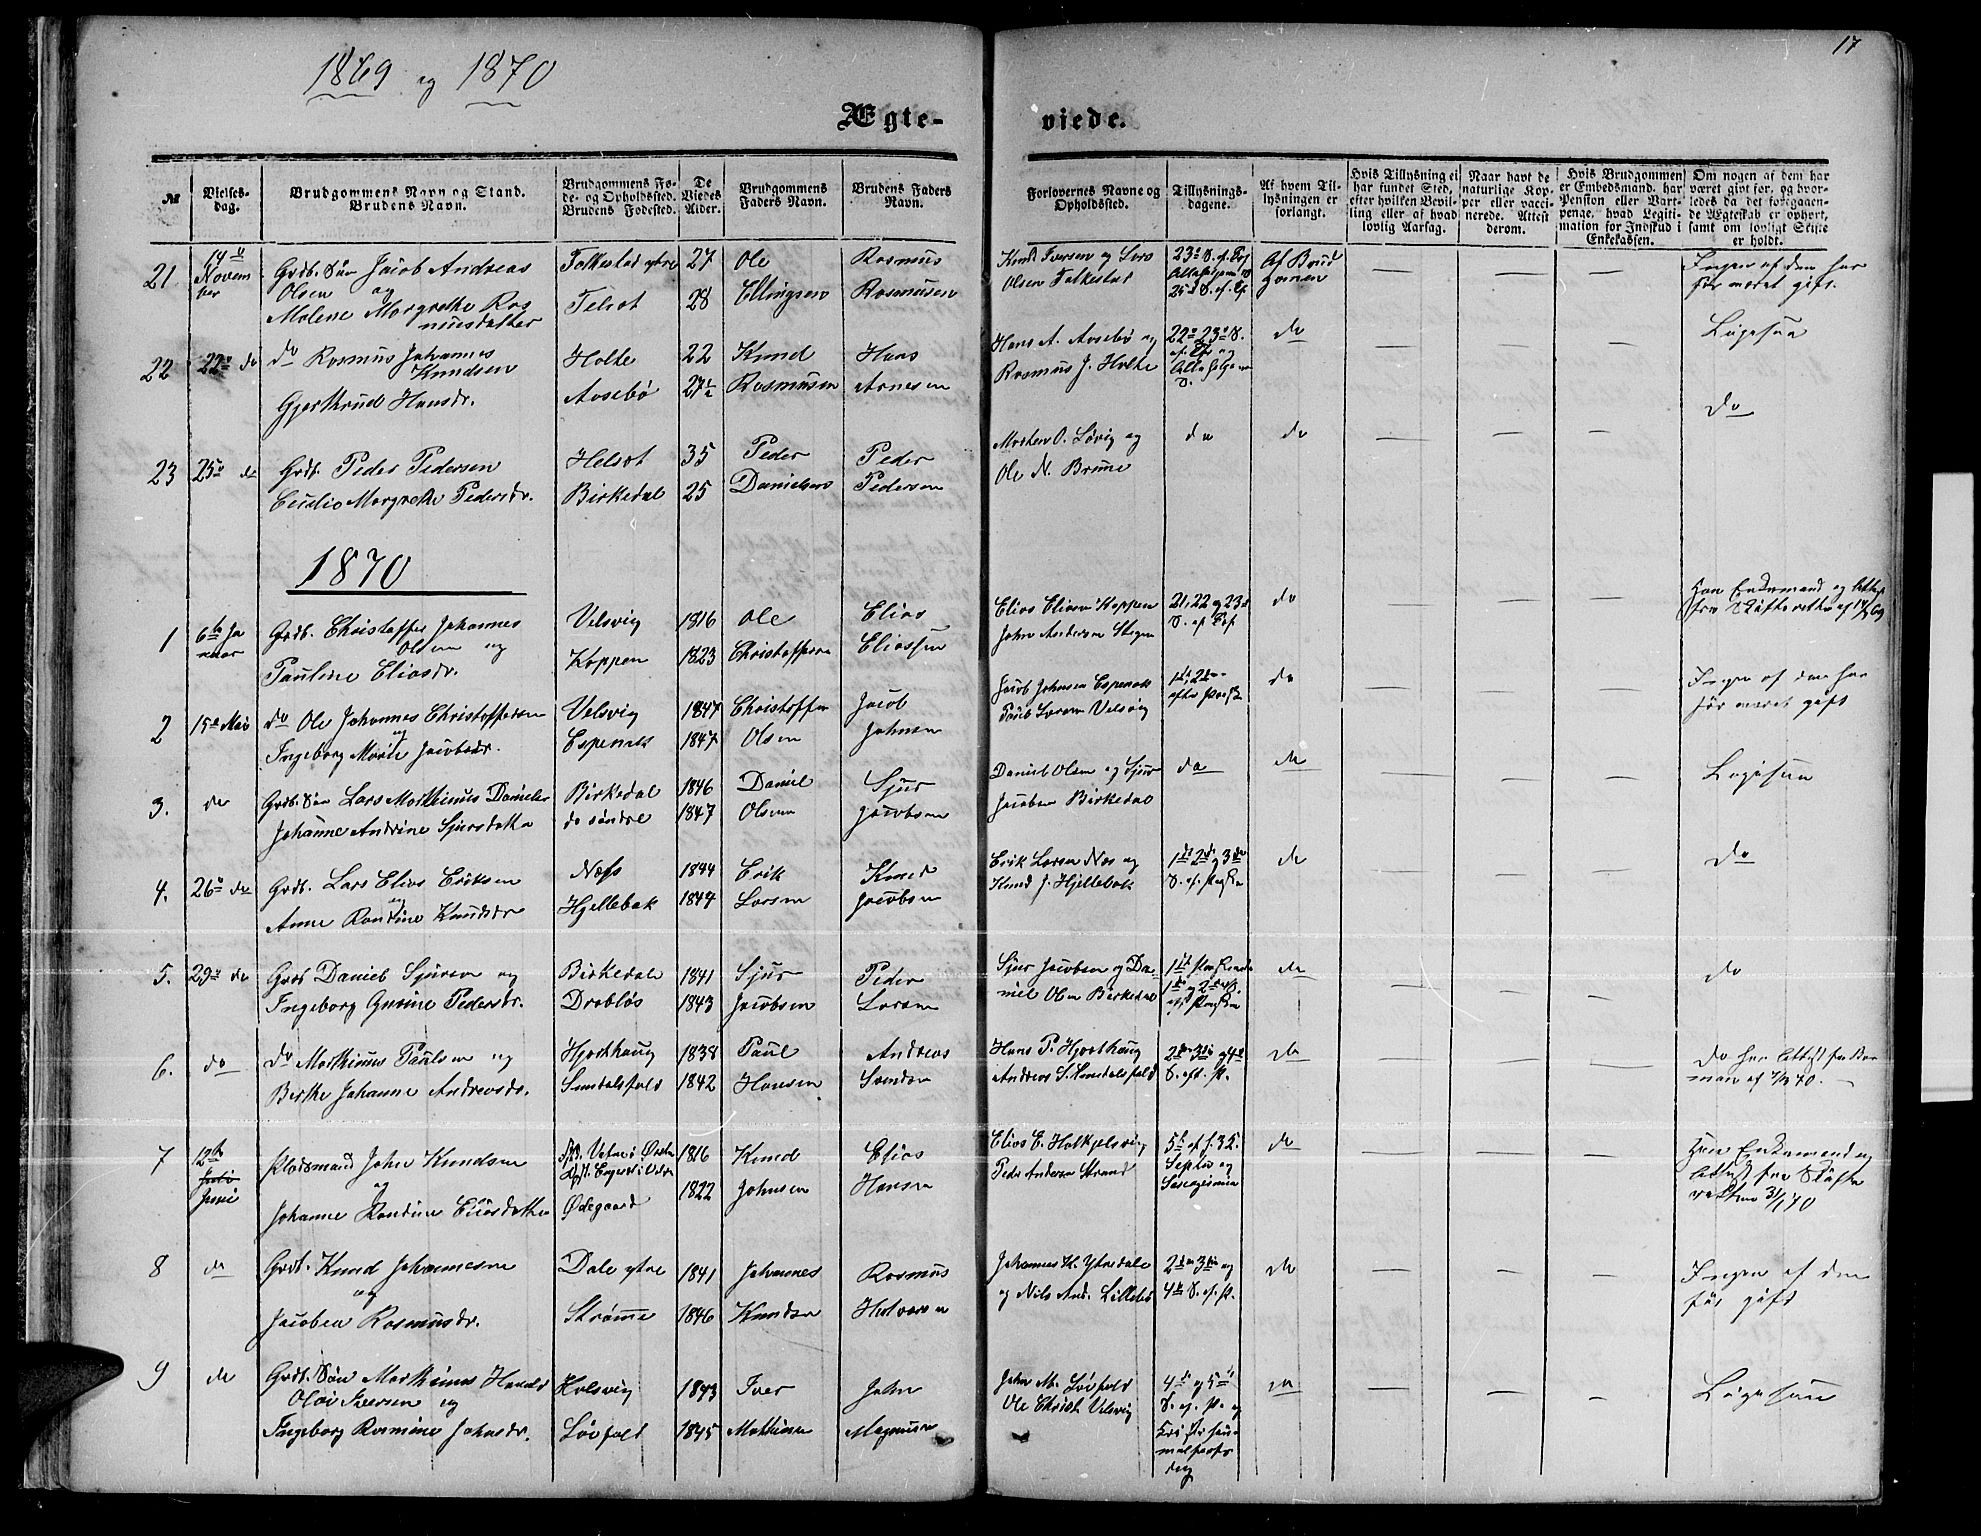 1869 og 1870
17
Ægte-
viede.
№
Vielses-
dag.
Brudgommens Navn og Stand.
Brudens Navn.
Brudgommens Fø-
de- og Opholdssted.
Brudens Fødested.
De
Viedes
Alder.
Brudgommens
Faders Navn.
Brudens Faders
Navn.
Forlovernes Navne og
Opholdssted.
Tillysnings-
dagene.
Af hvem Til-
lysningen er
forlangt.
Hvis Tillysning ei
har fundet Sted,
efter hvilken Bevil-
ling eller af hvad
lovlig Aarsag.
Naar havt de
naturlige Kop-
per eller vacci-
nerede. Attest
derom.
Hvis Brudgommen
er Embedsmand, har
Pension eller Vart-
penge, hvad Legiti-
mation for Indskud i
Enkekassen.
Om nogen af dem har
været givt før, og hvor-
ledes da det foregaaen-
de Ægteskab er ophørt,
samt om lovligt Skifte
er holdt.
21.
14de
Novem
ber
Grdb. Søn Jacob Andreas
Olsen og
Malene Margrethe Ras
musdatter
Folkestad ytre
27
28
Ole
Ellingsen
Rasmus
Rasmusen
Knud Iversen og Lars
Olsen Folkestad
Af Brud
gomen
Ingen af dem har
før været gift.
22
22de do
do Rasmus Johannes
Knudsen
Gjerthrud Hansdr.
Holte
Aasebø
22
27½
Knud
Rasmusen
Hans
Arnesen
Hans A. Aasebø og
Rasmus J. Holte
do
Ligesaa
23
25de do
Grdb. Peder Pedersen
Cecilie Margrethe Pedersdr.
Birkedal
35
25
Peder
Danielsen
Peder
Pedersen
Morten O. Løvig og
Ole N. Brune
do
do
do
1870
1
6te Ja
nuar
Grdb. Christoffer Johannes
Olsen og
Pauline Eliasdr.
Velsvig
Koppen
1816
1823
Ole
Christoffersen
Elias
Eliassen
Elias Eliasen Koppen
John Andersen Stegen
21, 22 og 23de
S. ef. Tref
do
Han Enkemand og Attest
fra Skifteretten af
2
15de Mai
do Ole Johannes Christoffersen
og
Ingeborg Marie Jacobsdr.
Velsvig
Espenak
1847
1847
Christoffer
Olsen
Jacob
Johnsen
Jacob Johnsen Espenak
Paul Larsen Velsvig
efter Paaske
do
Ingen af dem har
før været gift
3.
do
Grdb. Søn Lars Mathinus Daniels
Johanne Andrine Sjursdatter
Birkedal
do søndre
1846
1847
Daniel
Olsen
Sjur
Jacobsen
Daniel Olsen og Sjur
Jacobsen Birkedal
do
do
Ligesaa
4.
26de do
Grdb. Lars Elias Eriksen
og
Anne Randine Knudsdr
Næss
Hjellebak
1844
1844
Erik
Larsen
Knud
Jacobsen
Erik Larsen Næs og
Knud J. Hjellebak
1ste 2den og 3die
S. ef. Paaske
do
do
5.
29de do
Grdb Daniel Sjursen og
Ingeborg Gurine Pedersdr.
Birkedal
Drabløs
1841
1843
Sjur
Jacobsen
Peder
Larsen
Sjur Jacobsen og Da-
niel Olsen Birkedal
do
do
6.
do
do Mathinus Paulsen og
Berthe Johanne Andreasdr.
Hjorthaug
1838
1842
Paul
Hansen
Andreas
Hans P. Hjorthaug
2den 3die og 4de
S. eft. P.
do
7
12te
Juli
Juni
Pladsmand John Knudsen
og
Johanne Randine Eliasdatter
Ødegaard
1816
1822
Knud
Johnsen
Elias
Hansen
Peder Andersen Strand
do
Han Enkemand og
Attest fra Skifte
retten 31/1 70
8
do
Grdb. Knud Johannesen
og
Jacobea Rasmusdr.
Dale ytre
Strømme
1841
1846
Johannes
Knudsen
Rasmus
Halvorsen
Johannes K. Ytredale
og Nils And. Lillebø
2den 3die og
4de S. ef. P.
do
Ingen af dem
før gift
9
do
Grdb. Søn Mathinus Harald
Olai Iversen og
Ingeborg Rasmine Johnsdr.
Velsvig
Løvfald
1843
1845
Iver
Mathisen
John
Magnusen
John M. Løvfald
Ole Christ Velsvig
4de og 5de
S. ef. P. og
Kristi him
melfarts
dag
do
Ligesaa